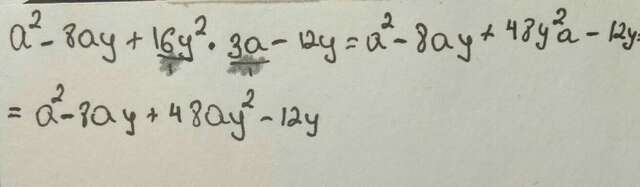 a² - 8ay + 16y² · 3a - 12y = a² - 8ay + 48y²a - 12y =
= a² - 8ay + 48ay² - 12y